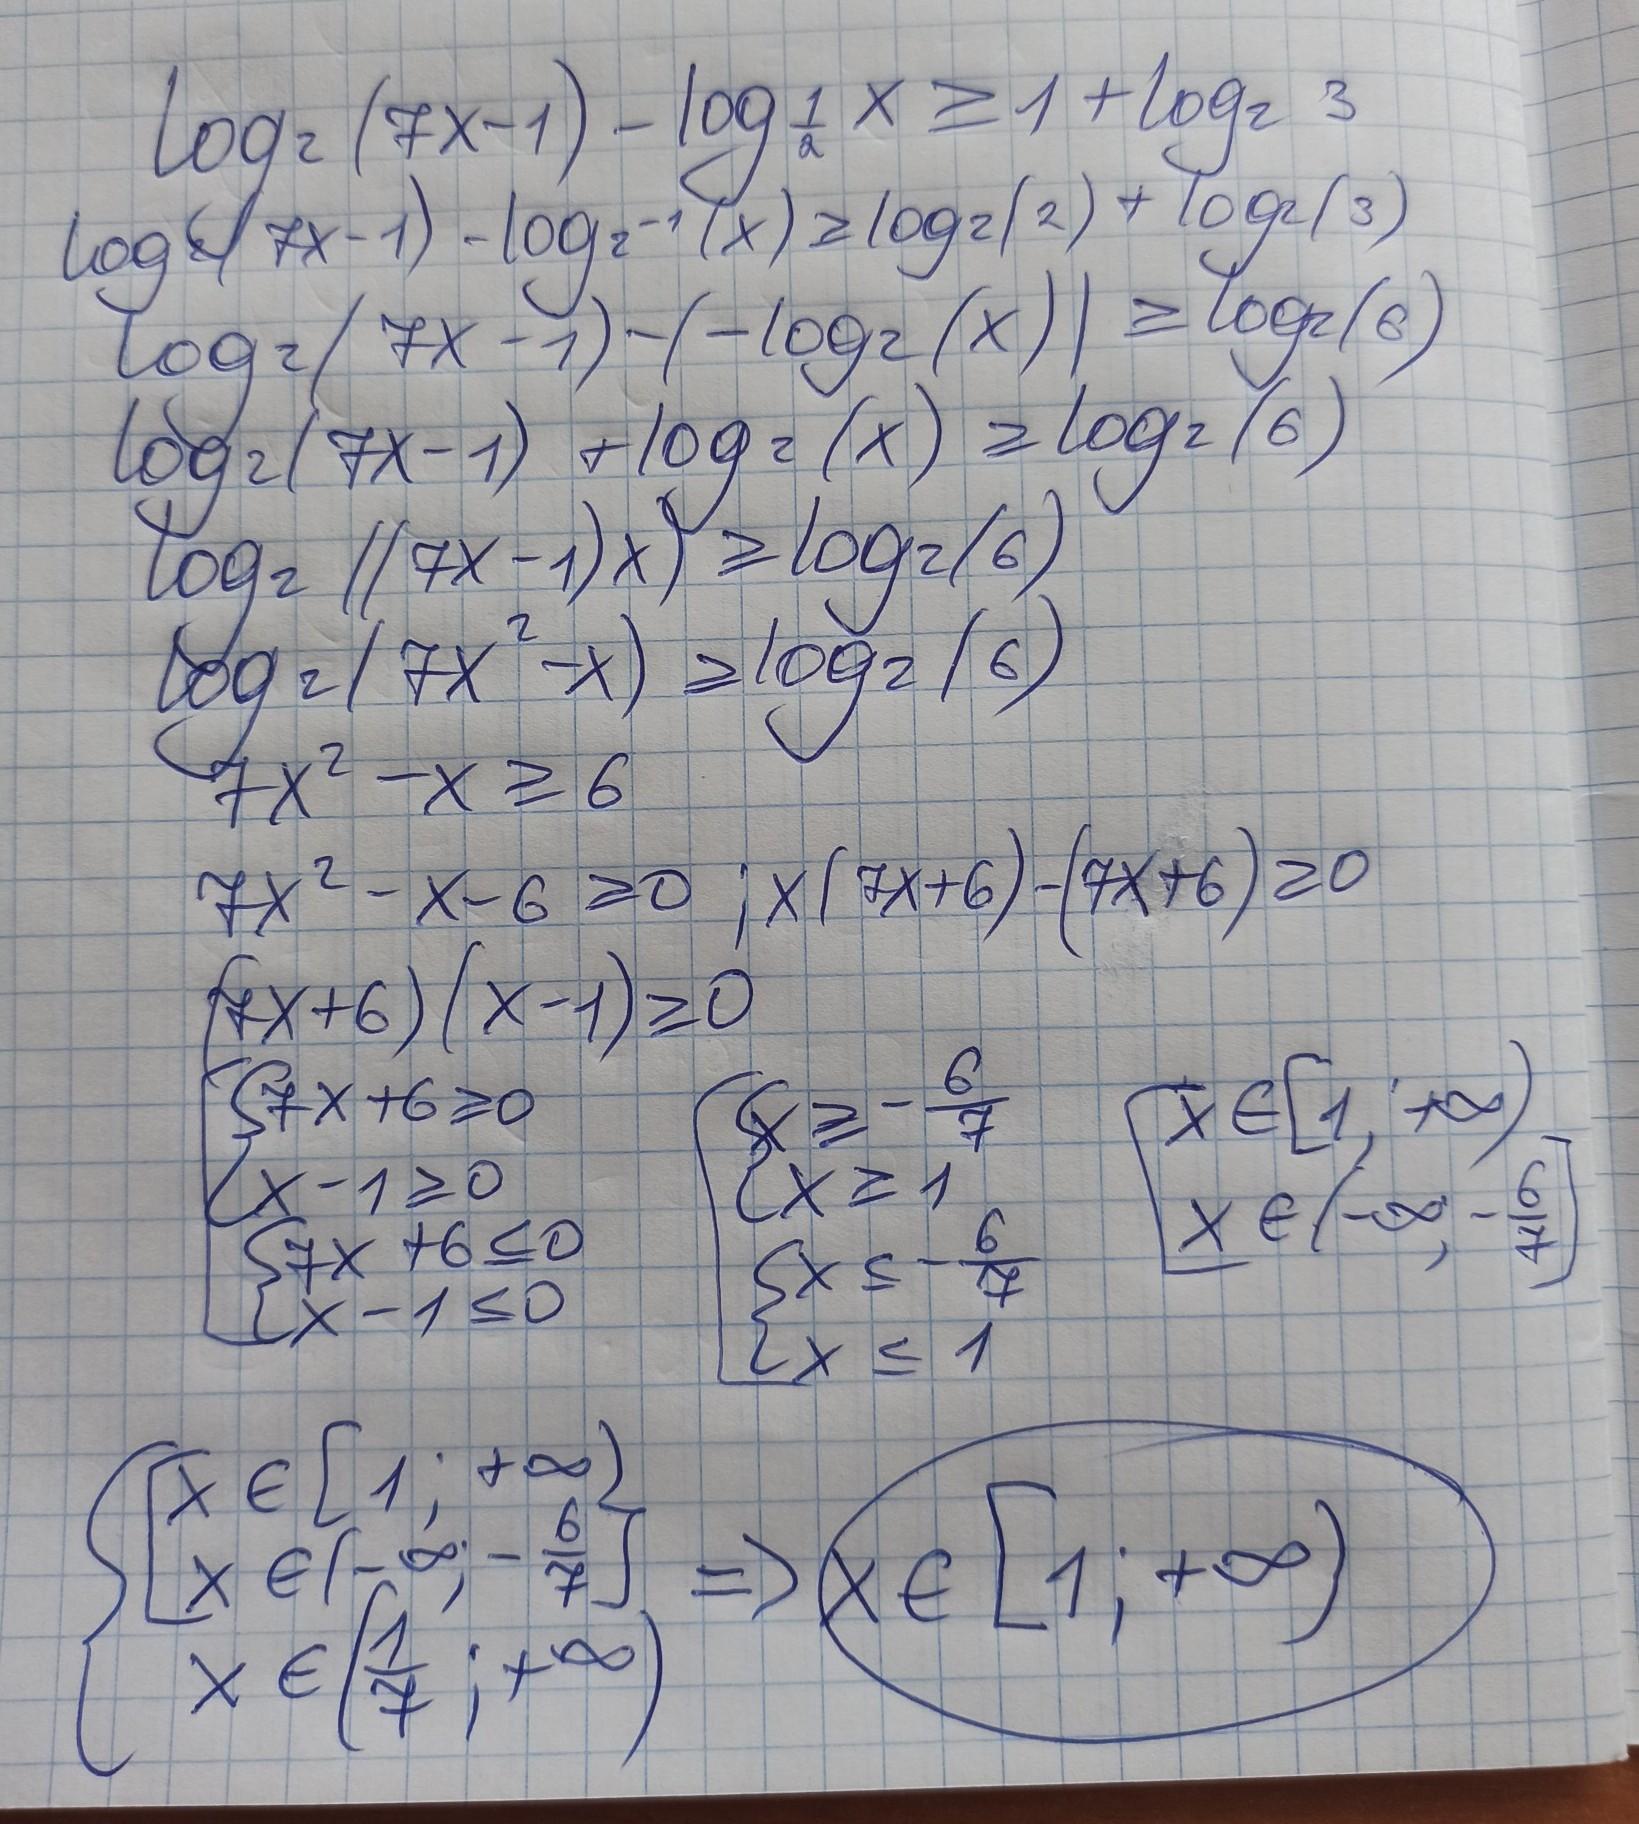 log₂(7x-1) - log_{1/2} x ≥ 1 + log₂ 3
log₂(7x-1) - log_{2⁻¹}(x) ≥ log₂(2) + log₂(3)
log₂(7x-1) - (-log₂(x)) ≥ log₂(6)
log₂(7x-1) + log₂(x) ≥ log₂(6)
log₂((7x-1)x) ≥ log₂(6)
log₂(7x²-x) ≥ log₂(6)
7x² - x ≥ 6
7x² - x - 6 ≥ 0 ; x(7x+6) - (7x+6) ≥ 0
(7x+6)(x-1) ≥ 0
[ { 7x+6 ≥ 0 [ { x ≥ -6/7 [ x ∈ [1; +∞)
{ x-1 ≥ 0 { x ≥ 1 x ∈ (-∞; -6/7]
{ 7x+6 ≤ 0 { x ≤ -6/7
{ x-1 ≤ 0 { x ≤ 1
{ [ x ∈ [1; +∞)
x ∈ (-∞; -6/7] => x ∈ [1; +∞)
x ∈ (1/7; +∞)